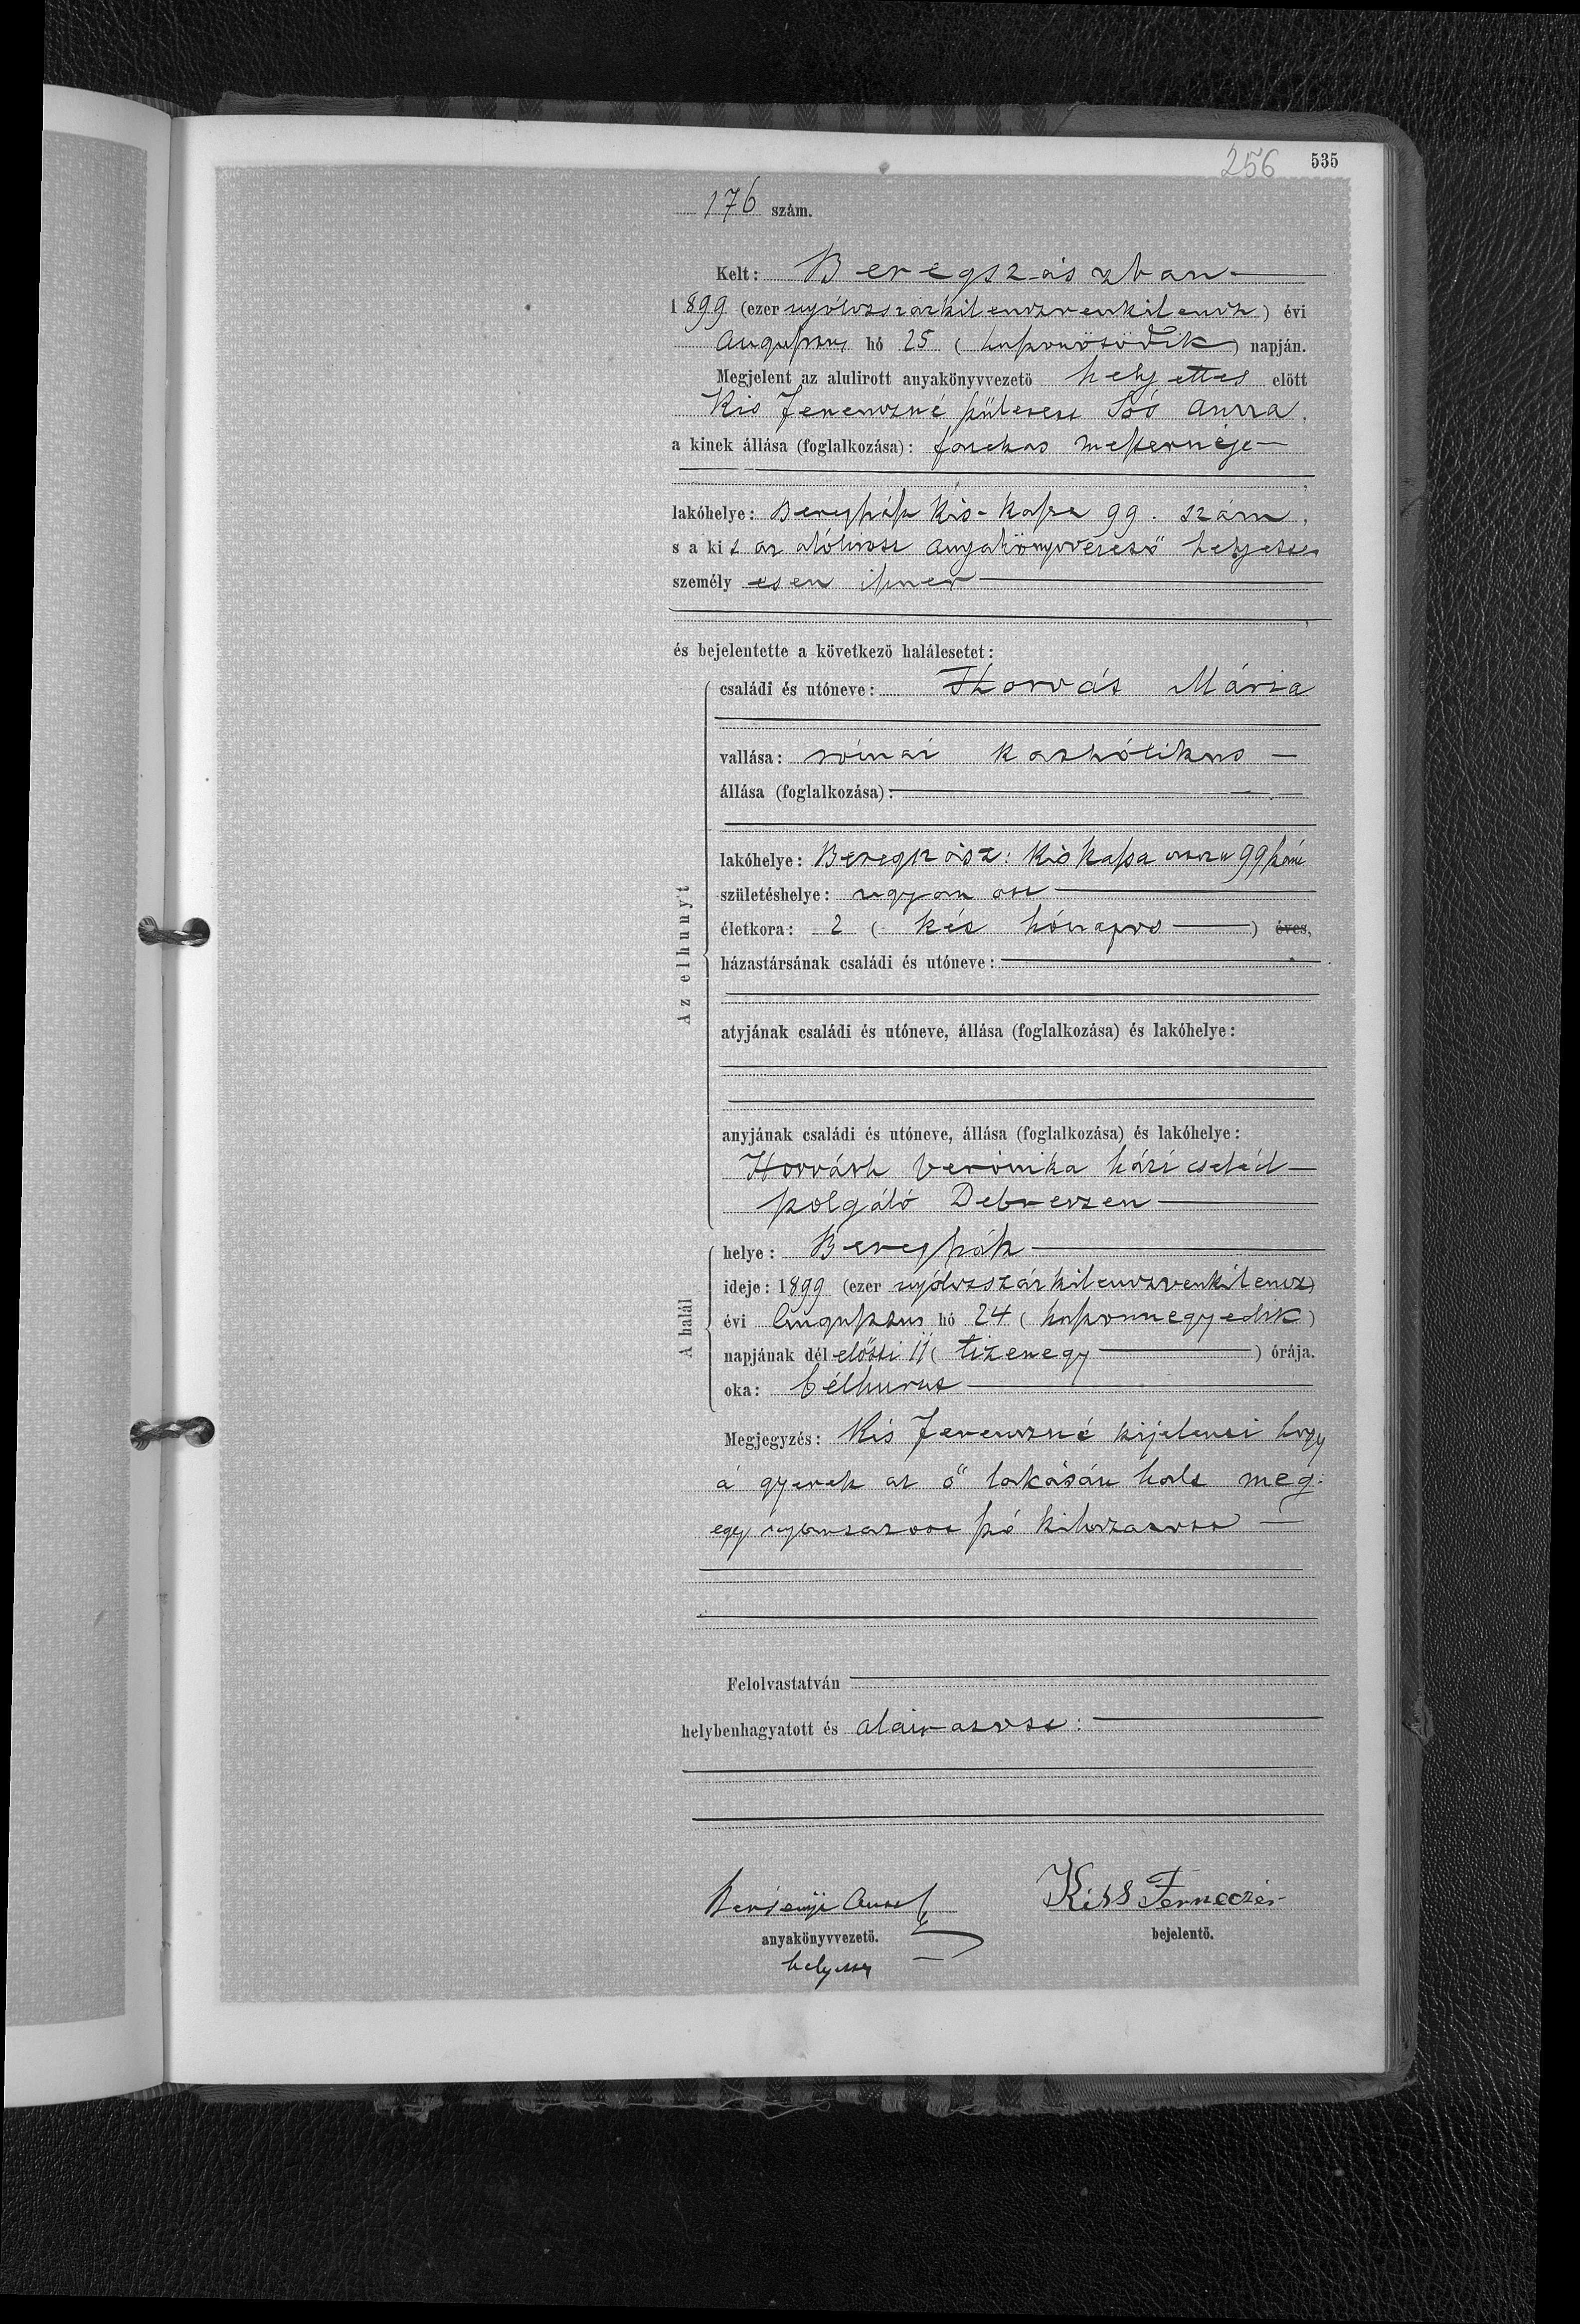 256 535
176 szám.
Kelt: Beregszászban
1899 (ezer nyólczszázkilenczvenkilencz) évi
Augusztus hó 25 (huszonötödik) napján.
Megjelent az alulirott anyakönyvvezető helyettes előtt
Kis Ferenczné született Soó Anna,
a kinek állása (foglalkozása): farekas mesterneje
lakóhelye: Beregszász Kis-Kassa 99. szám,
s a kit az alólirott anyakönyvvezető helyettes
személyesen ismer
és bejelentette a következő halálesetet:
Az elhunyt
családi és utóneve: Horvát Mária
vallása: római kathólikus
állása (foglalkozása):
lakóhelye: Beregszász: Kis Kassa utcza 99 szám
születéshelye: ugyan ott
életkora: 2 (két hónapos) éves,
házastársának családi és utóneve:
atyjának családi és utóneve, állása (foglalkozása) és lakóhelye:
anyjának családi és utóneve, állása (foglalkozása) és lakóhelye:
Horváth Verónika házi cseléd
szolgáló Debreczen
A halál
helye: Beregszász
ideje: 1899 (ezer nyólczszázkilenczvenkilencz)
évi Augusztus hó 24 (huszonnegyedik)
napjának dél előtti 11 (tizenegy) órája.
oka: bélhurut
Megjegyzés: Kis Ferenczné kijelenti hogy
a gyerek az ő lakásán halt meg:
egy szó
Felolvastatván
helybenhagyatott és aláiratott:
anyakönyvvezető. helyettes
Kiss Ferneczné
bejelentő.